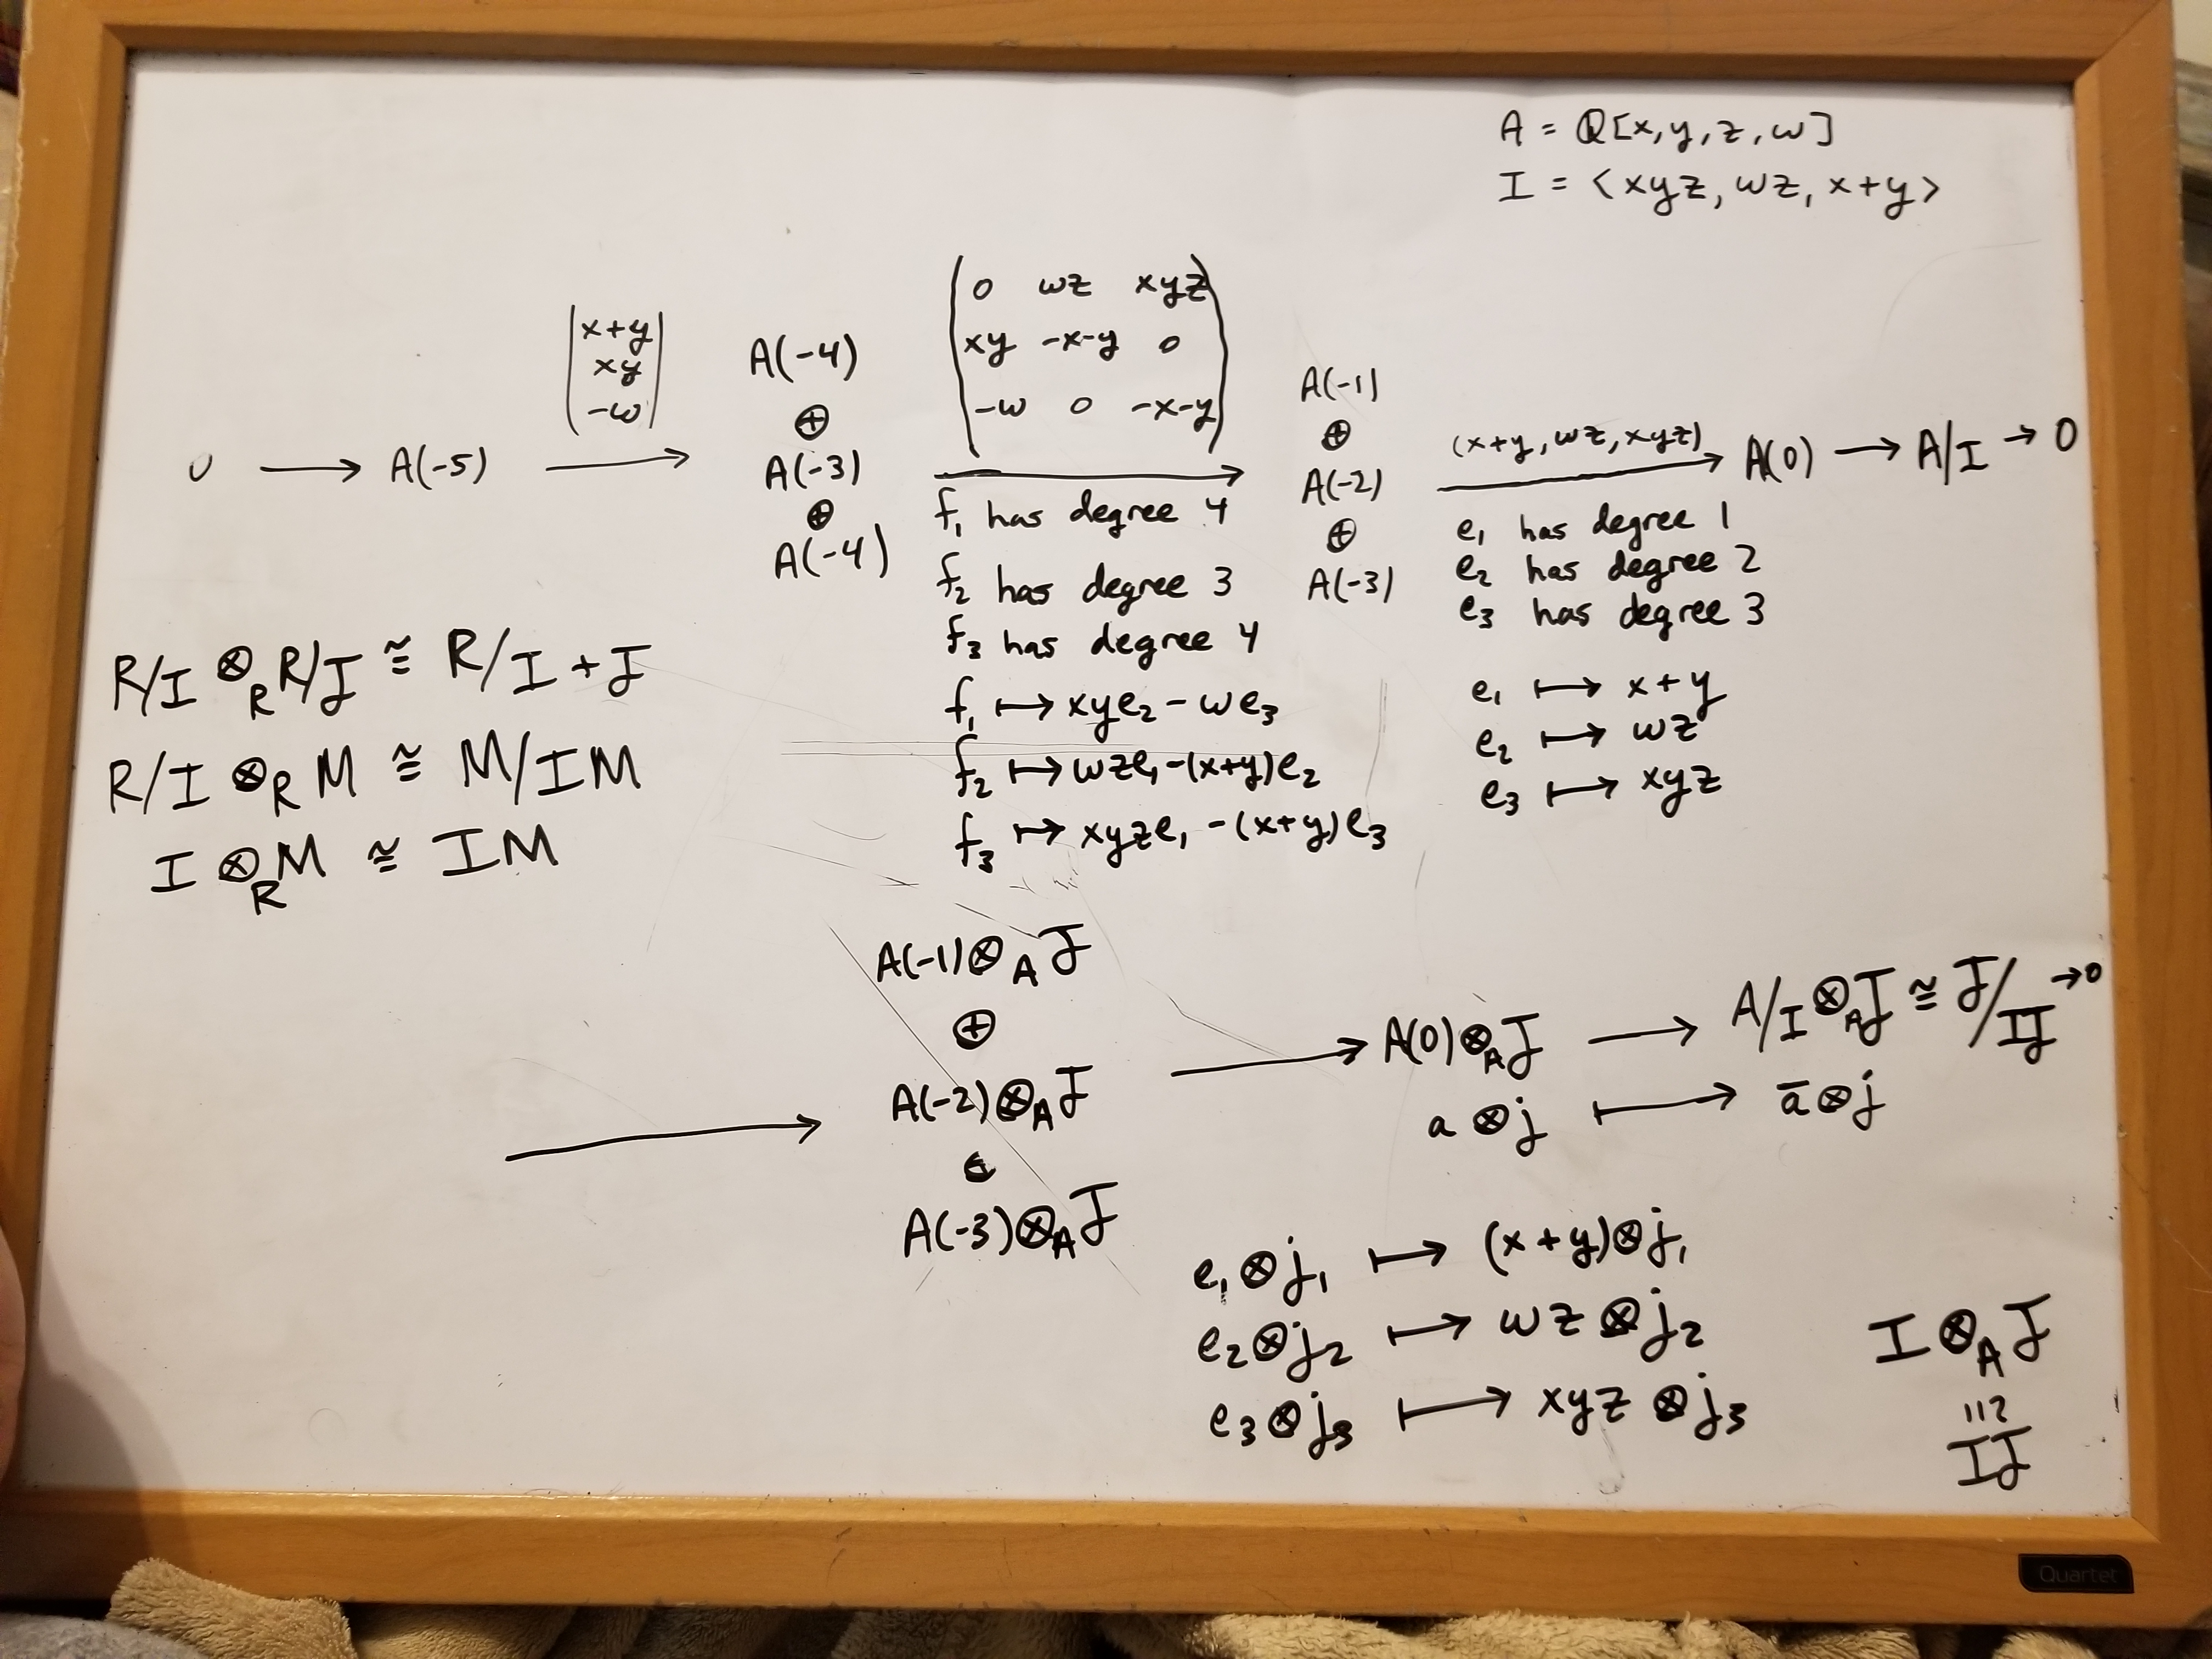 A = Q[x,y,z,w]
I = <xyz, wz, x+y>
0 → A(-5) → A(-4) ⊕ A(-3) ⊕ A(-4) → A(-1) ⊕ A(-2) ⊕ A(-3) → A(0) → A/I → 0
x+y
xy
-w
0 wz xyz
xy -x-y 0
-w 0 -x-y
(x+y, wz, xyz)
f₁ has degree 4
f₂ has degree 3
f₃ has degree 4
f₁ ↦ xye₂ - we₃
f₂ ↦ wze₁ -(x+y)e₂
f₃ ↦ xyze₁ -(x+y)e₃
e₁ has degree 1
e₂ has degree 2
e₃ has degree 3
e₁ ↦ x+y
e₂ ↦ wz
e₃ ↦ xyz
R/I ⊗_R R/J ≅ R/I+J
R/I ⊗_R M ≅ M/IM
I ⊗_R M ≅ IM
→ A(-1)⊗_A J ⊕ A(-2)⊗_A J ⊕ A(-3)⊗_A J → A(0)⊗_A J → A/I ⊗_A J ≅ J/IJ → 0
a ⊗ j ↦ ā ⊗ j
e₁⊗j₁ ↦ (x+y)⊗j₁
e₂⊗j₂ ↦ wz⊗j₂
e₃⊗j₃ ↦ xyz⊗j₃
I ⊗_A J
≅
IJ
Quartet